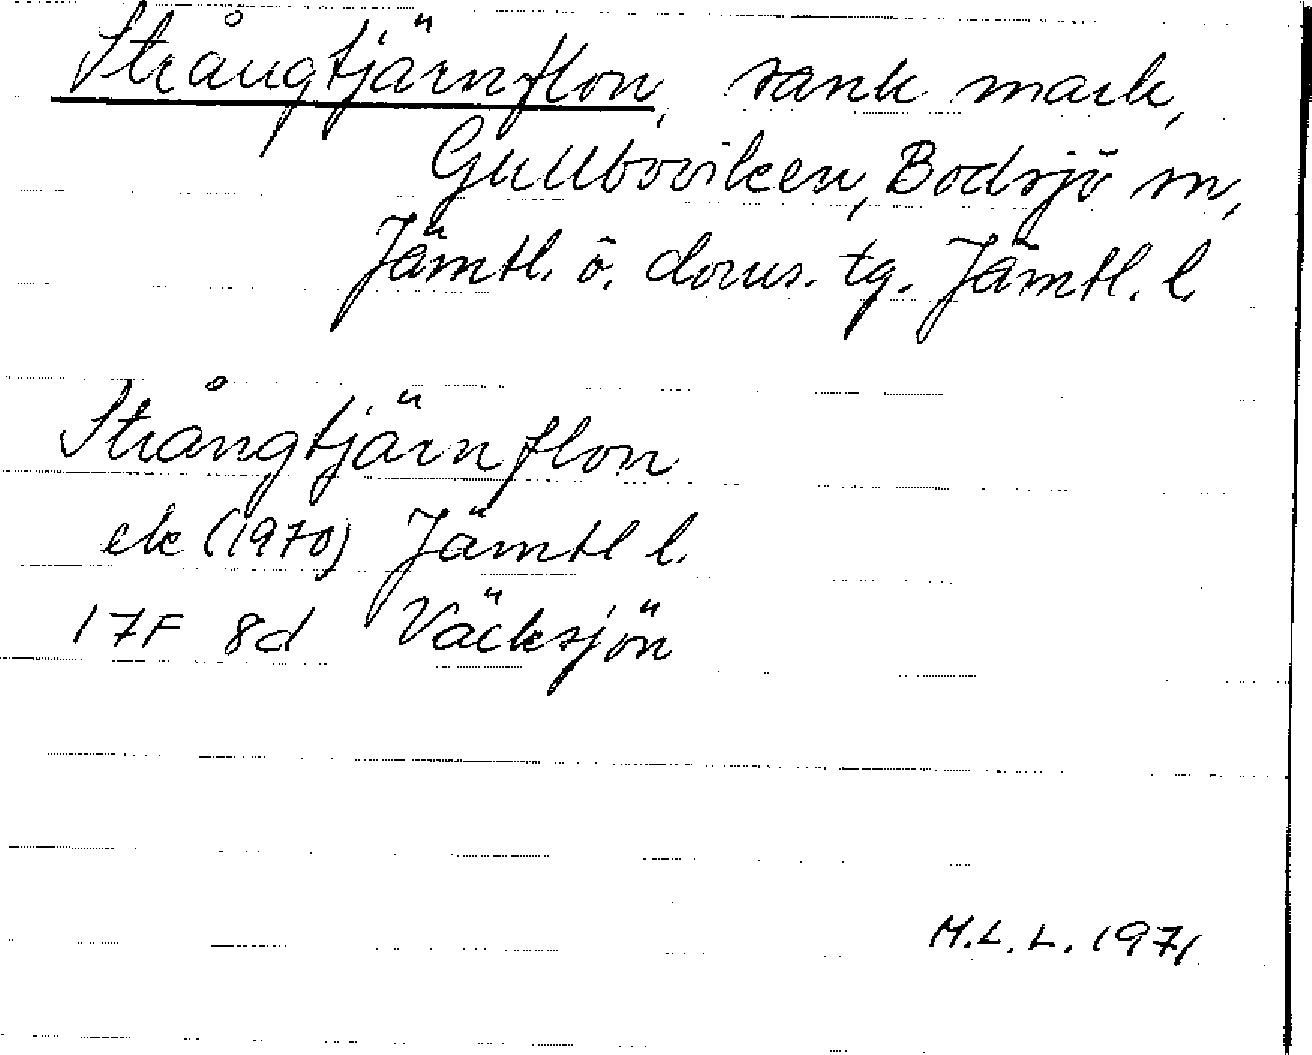 Strångtjärnflon, sank mark,
Gullboviken, Bodsjö sn,
Jämtl. ö. doms. tg. Jämtl. l.
Strångtjärnflon
ek (1970) Jämtl l.
17F 8d Väcksjön
M.L.L. 1971